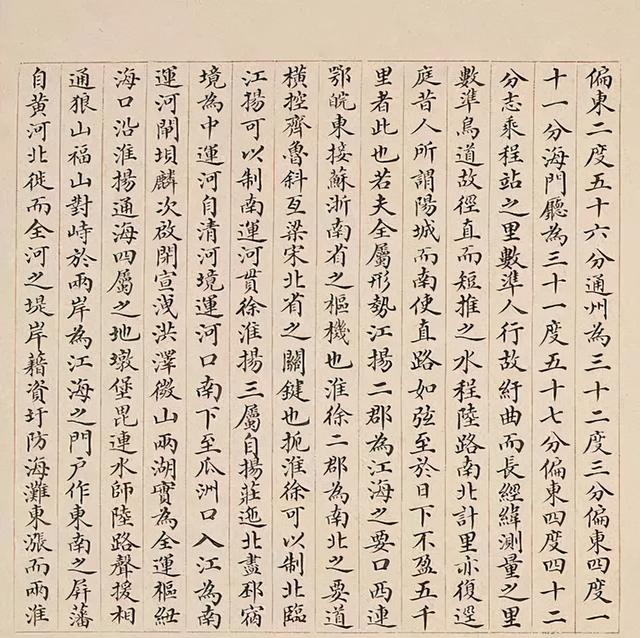 偏東二度五十六分通州為三十二度三分偏東四度一
十一分海門廳為三十一度五十七分偏東四度四十二
分志乘程站之里數準人行故紆曲而長經緯測量之里
數準鳥道故徑直而短推之水程陸路南北計里亦復逕
庭昔人所謂陽城而南使直路如弦至於日下不盈五千
里者此也若夫全屬形勢江揚二郡為江海之要口西連
鄂皖東接蘇浙南省之樞機也淮徐二郡為南北之要道
橫控齊魯斜亙梁宋北省之關鍵也扼淮徐可以制北臨
江揚可以制南運河貫徐淮揚三屬自揚莊迤北盡邳宿
境為中運河自清河境運河口南下至瓜洲口入江為南
運河閘壩鱗次啟閉宣洩洪澤微山兩湖實為全運樞紐
海口沿淮揚通海四屬之地墩堡毘連水師陸路聲援相
通狼山福山對峙於兩岸為江海之門戶作東南之屏藩
自黃河北徙而全河之堤岸藉資圩防海灘東漲而兩淮